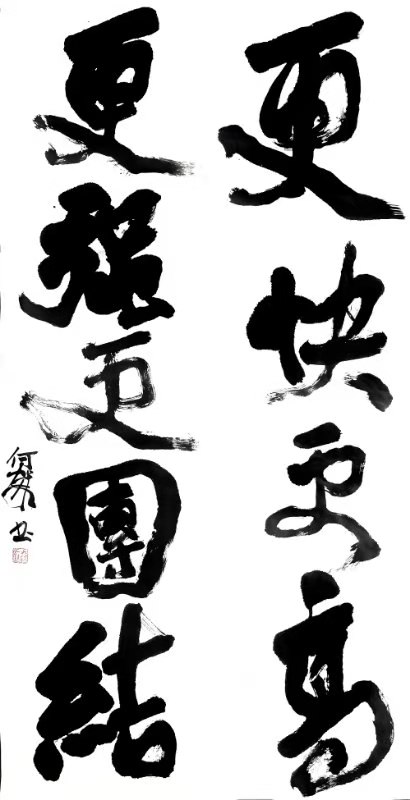 更快更高
更强更團結
何
书